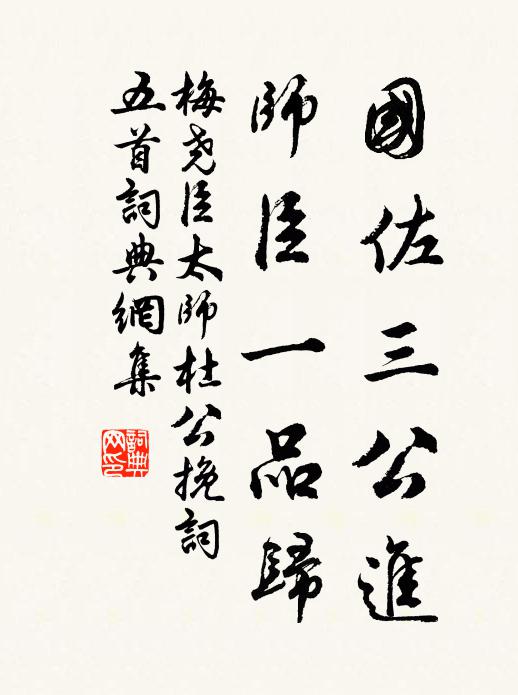 國佐三公進
師臣一品歸
梅尧臣太師杜公挽詞
五首詞典網集
詞典
网印